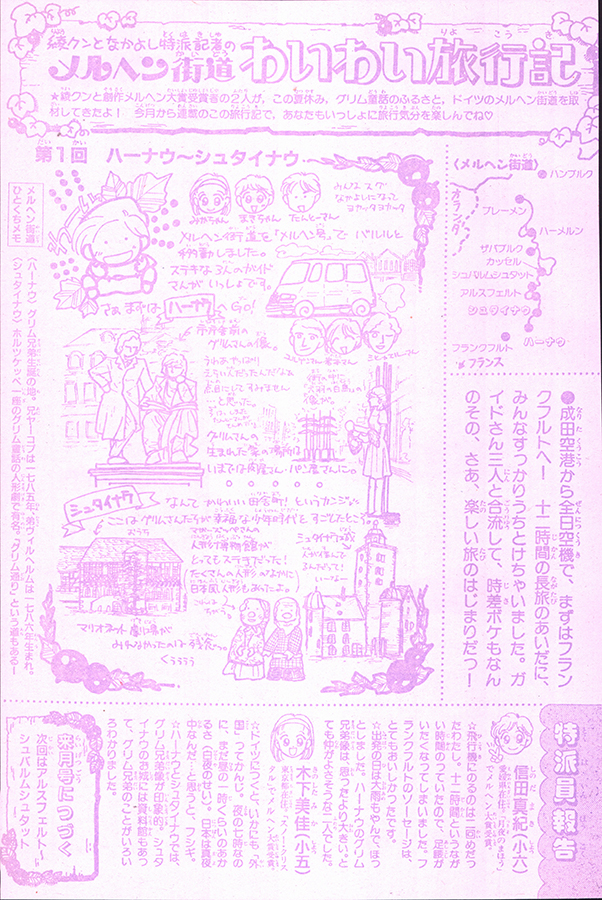 綾クンとなかよし特派記者の
メルヘン街道わいわい旅行記
★綾クンと創作メルヘン大賞受賞者の2人が、この夏休み、グリム童話のふるさと、ドイツのメルヘン街道を取
材してきたよ! 今月から連載のこの旅行記で、あなたもいっしょに旅行気分を楽しんでね♡
第1回 ハーナウ〜シュタイナウ
〈メルヘン街道〉
ハンブルク
ブレーメン
オランダ
ハーメルン
ザバブルク
カッセル
シュバルムシュタット
アルスフェルト
シュタイナウ
ハーナウ
フランクフルト
フランス
●成田空港から全日空機で、まずはフラン
クフルトへー 十二時間の長旅のあいだに、
みんなすっかりうちとけちゃいました。ガ
イドさん三人と合流して、時差ボケもなん
のその、さあ、楽しい旅のはじまりだっ!
みかちゃん
まきちゃん
たんとーマン
みんなスグ
なかよしになって
メルヘン街道を「メルヘン号」で
移動しました。
ステキな3人のガイド
マンがいっしょです。
さぁ まずは ハーナウ へ GO!
市庁舎前の
グリムさんの像。
グリムさんの
生まれた家の場所
いまでは肉屋さん・パン屋さんに。
シュタイナウ
なんてかわいい田舎町!というカンジ
ここはグリムさんたちが幸福な少年時代をすごしたところ。
おうち
人形げき博物館が
とってもステキだった!
たくさんの人形のなかに
日本風人形もあったよ。
シュタイナウ城
マリオネット劇場が
みれなかったのは残念っ。
くううう
メルヘン街道
ひとくちメモ
〈ハーナウ〉グリム兄弟生誕の地。兄ヤーコプは一七八五年、弟ヴィルヘルムは一七八六年生まれ。
〈シュタイナウ〉ホルツケッペ一座のグリム童話の人形劇で有名。「グリム通り」という道もある!
特派員報告
信田真紀(小六)
愛媛県在住。「月夜のまほう」
でメルヘン大賞受賞。
☆飛行機にのるのは二回めだっ
たわたし。十二時間というなが
い時間のっていたので、足腰が
いたくなってしまいました。フ
ランクフルトのソーセージは、
とてもおいしかったです。
☆出発の日は大雨もやんで、ほっ
としました。ハーナウのグリム
兄弟像は、思ったより大きい。と
ても仲がよさそうな二人でした。
木下美佳(小五)
東京都在住。「スノー・クリス
タル」でメルヘン大賞受賞。
☆ドイツにつくと、いかにも「外
国」ってかんじ。夜の七時なの
に、まだ昼の一時くらいのあか
るさ(白夜のせい)。日本は真夜
中なんだ!と思うと、フシギ。
☆ハーナウとシュタイナウでは、
グリム兄弟像が印象的。シュタ
イナウのお城には資料館もあっ
て、グリム兄弟のことがいろい
ろわかりました。
来月号につづく
次回はアルスフェルト〜
シュバルムシュタット